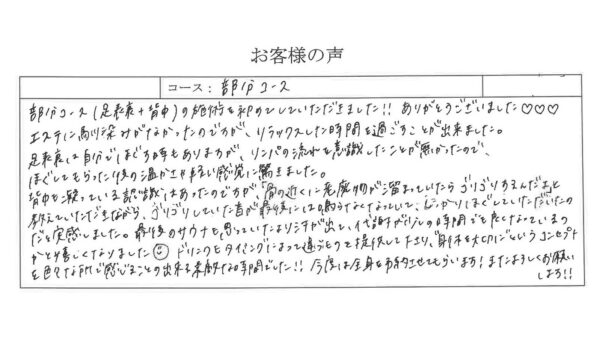 お客様の声
コース：部分コース
部分コース(足表裏+背中)の施術を初めてしていただきました!! ありがとうございました♡♡♡
エステに馴染みがなかったのですが、リラックスした時間を過ごすことが出来ました。
足表裏は自分でほぐす時もありますが、リンパの流れを意識したことが無かったので、
ほぐしてもらった後の温かさや軽い感覚に驚きました。
背中も凝っている認識はあったのですが、「肩の近くに老廃物が溜まっていたらゴリゴリするんだ」と
教えていただきながら、ゴリゴリしていた音が最後には鳴らなくなっていて、しっかりほぐしていただいたの
だと実感しました。最後のサウナも思っていたより汗が出て、代謝が少しの時間でも良くなっているの
かと嬉しくなりました ドリンクもタイミングによって違うものを提供して下さり、"身体を大切に"というコンセプト
を色々な所で感じることの出来る素敵な時間でした!! 今度は全身を予約させてもらいます! またよろしくお願い
します!!